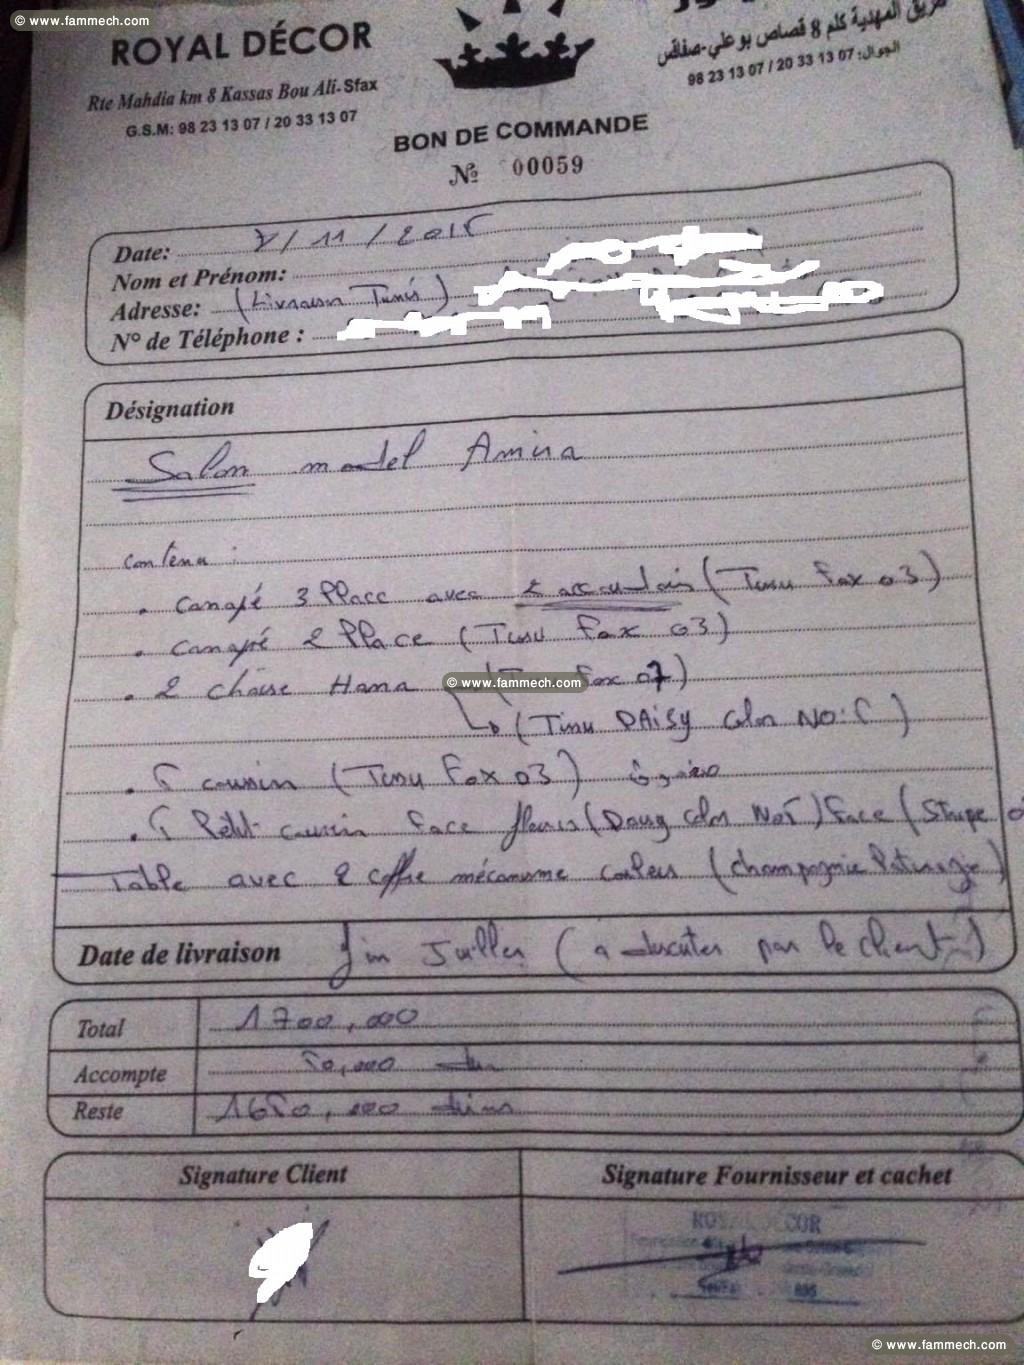 © www.fammech.com
ROYAL DÉCOR
Rte Mahdia km 8 Kassas Bou Ali-Sfax
G.S.M: 98 23 13 07 / 20 33 13 07
طريق المهدية كلم 8 قصاص بوعلي-صفاقس
الجوال: 98 23 13 07 / 20 33 13 07
BON DE COMMANDE
№ 00059
Date: 7/11/2015
Nom et Prénom:
Adresse: (Livraison Tunis)
N° de Téléphone :
Désignation
Salon model Amira
Contenu :
• Canapé 3 Place avec 2 accoudois (Tissu Fox 03)
• Canapé 2 Place (Tissu Fox 03)
• 2 chaise Hana (Fox 07)
© www.fammech.com
(Tissu DAISY Color NO: 5)
• 5 coussin (Tissu Fox 03)
• 5 Petit coussin Face fleuris (Daisy Color No 5) Face (Stupe
Table avec 2 coffre mécanisme couleur (champagnie
Date de livraison fin Juillet (a discuter par le client)
Total 1700,000
Accompte 50,000
Reste 1650,000
Signature Client
Signature Fournisseur et cachet
ROYAL DECOR
© www.fammech.com